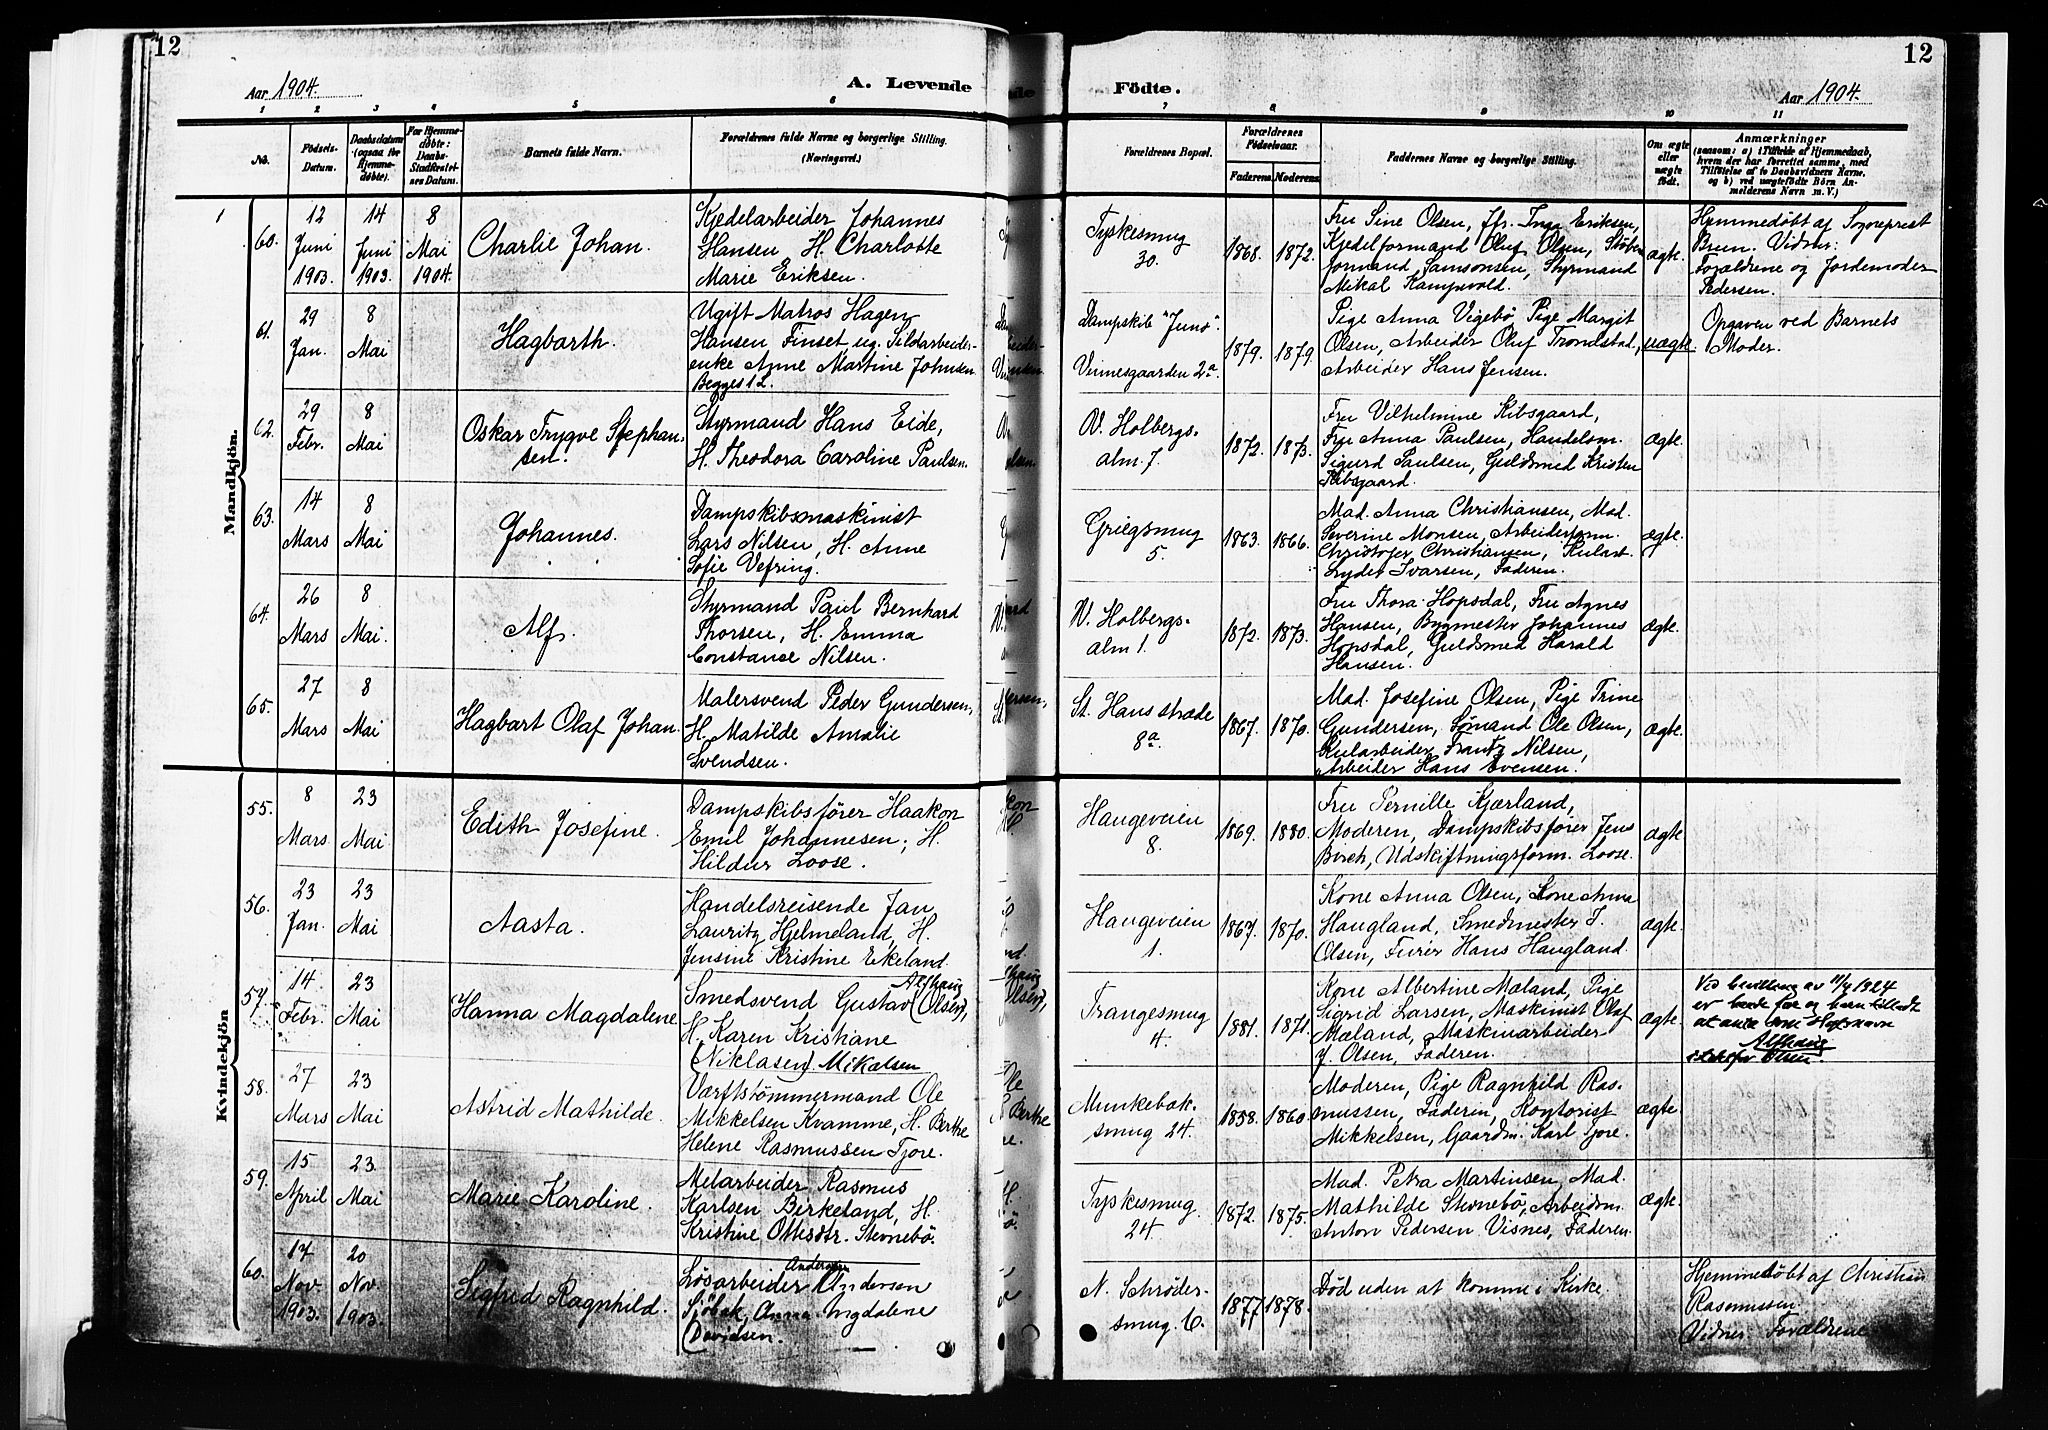 12
Aar 1904.
A. Levende
1 2 3 4 5 6
No.
Födsels-
Datum.
Daabsdatum
(ogsaa for
Hjemme-
døbte).
For Hjemme-
døbte:
Daabs-
Stadfæstel-
ses Datum.
Barnets fulde Navn.
Forældrenes fulde Navne og borgerlige Stilling.
(Næringsvei.)
Mandkjön.
60.
12
Juni
1903.
14
Juni
1903.
8
Mai
1904.
Charlie Johan.
Kjedelarbeider Johannes
Hansen H. Charlotte
Marie Eriksen.
61.
29
Jan.
8
Mai
Hagbarth.
Ugift Matros Hagen
Hansen Finset ug. Sildarbeider-
enke Anne Martine Johnsen
Begges 1 L.
62.
29
Febr.
8
Mai
Oskar Trygve Stephan-
sen.
Styrmand Hans Eide,
H. Theodora Caroline Paulsen.
63.
14
Mars
8
Mai
Johannes.
Dampskibsmaskinist
Lars Nilsen, H. Anne
Sofie Vefring.
64.
26
Mars
8
Mai
Alf.
Styrmand Paul Bernhard
Thorsen, H. Emma
Constance Nilsen.
65.
27
Mars
8
Mai
Hagbart Olaf Johan.
Malersvend Peder Gundersen,
H. Matilde Amalie
Svendsen.
Kvindekjön
55.
8
Mars
23
Mai
Edith Josefine.
Dampskibsfører Haakon
Emil Johannesen, H.
Hildur Loose.
56.
23
Jan.
23
Mai
Aasta.
Handelsreisende Jan
Lauritz Hjelmeland, H.
Jensine Kristine Ekeland.
57.
14
Febr.
23
Mai
Hanna Magdalene
Alfhaug
Smedsvend Gustav (Olsen),
H. Karen Kristiane
(Niklasen) Mikalsen
58.
27
Mars
23
Mai
Astrid Mathilde.
Værftstømmermand Ole
Mikkelsen Kvamme, H. Berthe
Helene Rasmussen Tjore.
59.
15
April
23
Mai
Marie Karoline.
Melarbeider Rasmus
Karlsen Birkeland, H.
Kristine Ottesdtr. Stevnebø.
60.
17
Nov.
1903.
20
Nov.
1903.
Sigfrid Ragnhild.
Andersen
Løsarbeider Andersen
Sjöbak, Anna Magdalene
Davidsen.
12
Födte.
Aar 1904.
7 8 9 10 11
Forældrenes Bopæl.
Forældrenes
Födselsaar.
Faderens. Moderens.
Faddernes Navne og borgerlige Stilling.
Om ægte
eller
uægte
födt.
Anmærkninger
(saasom: a) i Tilfælde af Hjemmedaab,
hvem der har forrettet samme, med
Tilföielse af to Daabsvidners Navne,
og b) ved uægtefödte Börn An-
melderens Navn m. V.)
Tyskesmug
30.
1868. 1872.
Fru Sine Olsen, Jfr. Inga Eriksen,
Kjedelformand Oluf Olsen, Støber-
formand Samsonsen, Styrmand
Mikal Kampevold.
ægte.
Hjemmedøbt af Sogneprest
Brun. Vidner:
Forældrene og Jordemoder
Pedersen.
Dampskib "Juno".
Vinnesgaarden 2a.
1879. 1879.
Pige Anna Vigebø Pige Margit
Olsen, Arbeider Oluf Trondstad,
Arbeider Hans Jensen.
uægte.
Opgaven ved Barnets
Moder.
W. Holbergs-
alm. 7.
1872. 1873.
Fru Vilhelmine Kibsgaard,
Fru Anna Paulsen, Handelsm.
Sigurd Paulsen, Guldsmed Kristen
Kibsgaard.
ægte.
Griegsmug
5.
1863. 1866.
Mad. Anna Christiansen, Mad.
Severine Monsen, Arbeiderform.
Christofer Christiansen, Kularb.
Lyder Ivarsen, Faderen.
ægte.
W. Holbergs-
alm 1.
1872. 1873.
Fru Thora Hopsdal, Fru Agnes
Hansen, Bygmester Johannes
Hopsdal, Guldsmed Harald
Hansen.
ægte.
St. Hansstræde
8a.
1867. 1870.
Mad. Josefine Olsen, Pige Trine
Gundersen, Sømand Ole Olsen,
Kularbeider Frantz Nilsen,
Arbeider Hans Evensen.
ægte.
Haugeveien
8.
1869. 1880.
Fru Pernille Kjærland,
Moderen, Dampskibsfører Jens
Birch, Udskiftningsform. Loose.
ægte
Haugeveien
1.
1867. 1870.
Kone Anna Olsen, Kone Anna
Haugland, Smedmester J.
Olsen, Furér Hans Haugland.
ægte.
Trangesmug
4.
1881. 1871.
Kone Albertine Mæland, Pige
Sigrid Larsen, Maskinist Olaf
Mæland, Maskinarbeider
J. Olsen, Faderen.
ægte.
Ved bevilling av 11/4 1924
er baade far og barn tilladt
at anta som
Alfhaug
istedetfor Olsen.
Munkebæk-
smug 24.
1858. 1860.
Moderen, Pige Ragnhild Ras-
mussen, Faderen, Kontorist
Mikkelsen, Gaardm. Karl Tjore.
ægte.
Tyskesmug.
24.
1872. 1875.
Mad. Petra Martinsen, Mad.
Mathilde Stevnebø, Arbeidsm.
Anton Pedersen Visnes, Faderen.
ægte.
N. Schrøder-
smug. 6.
1877 1878.
Død uden at komme i Kirke.
Hjemmedøbt af Christian
Rasmussen.
Vidner: Forældrene